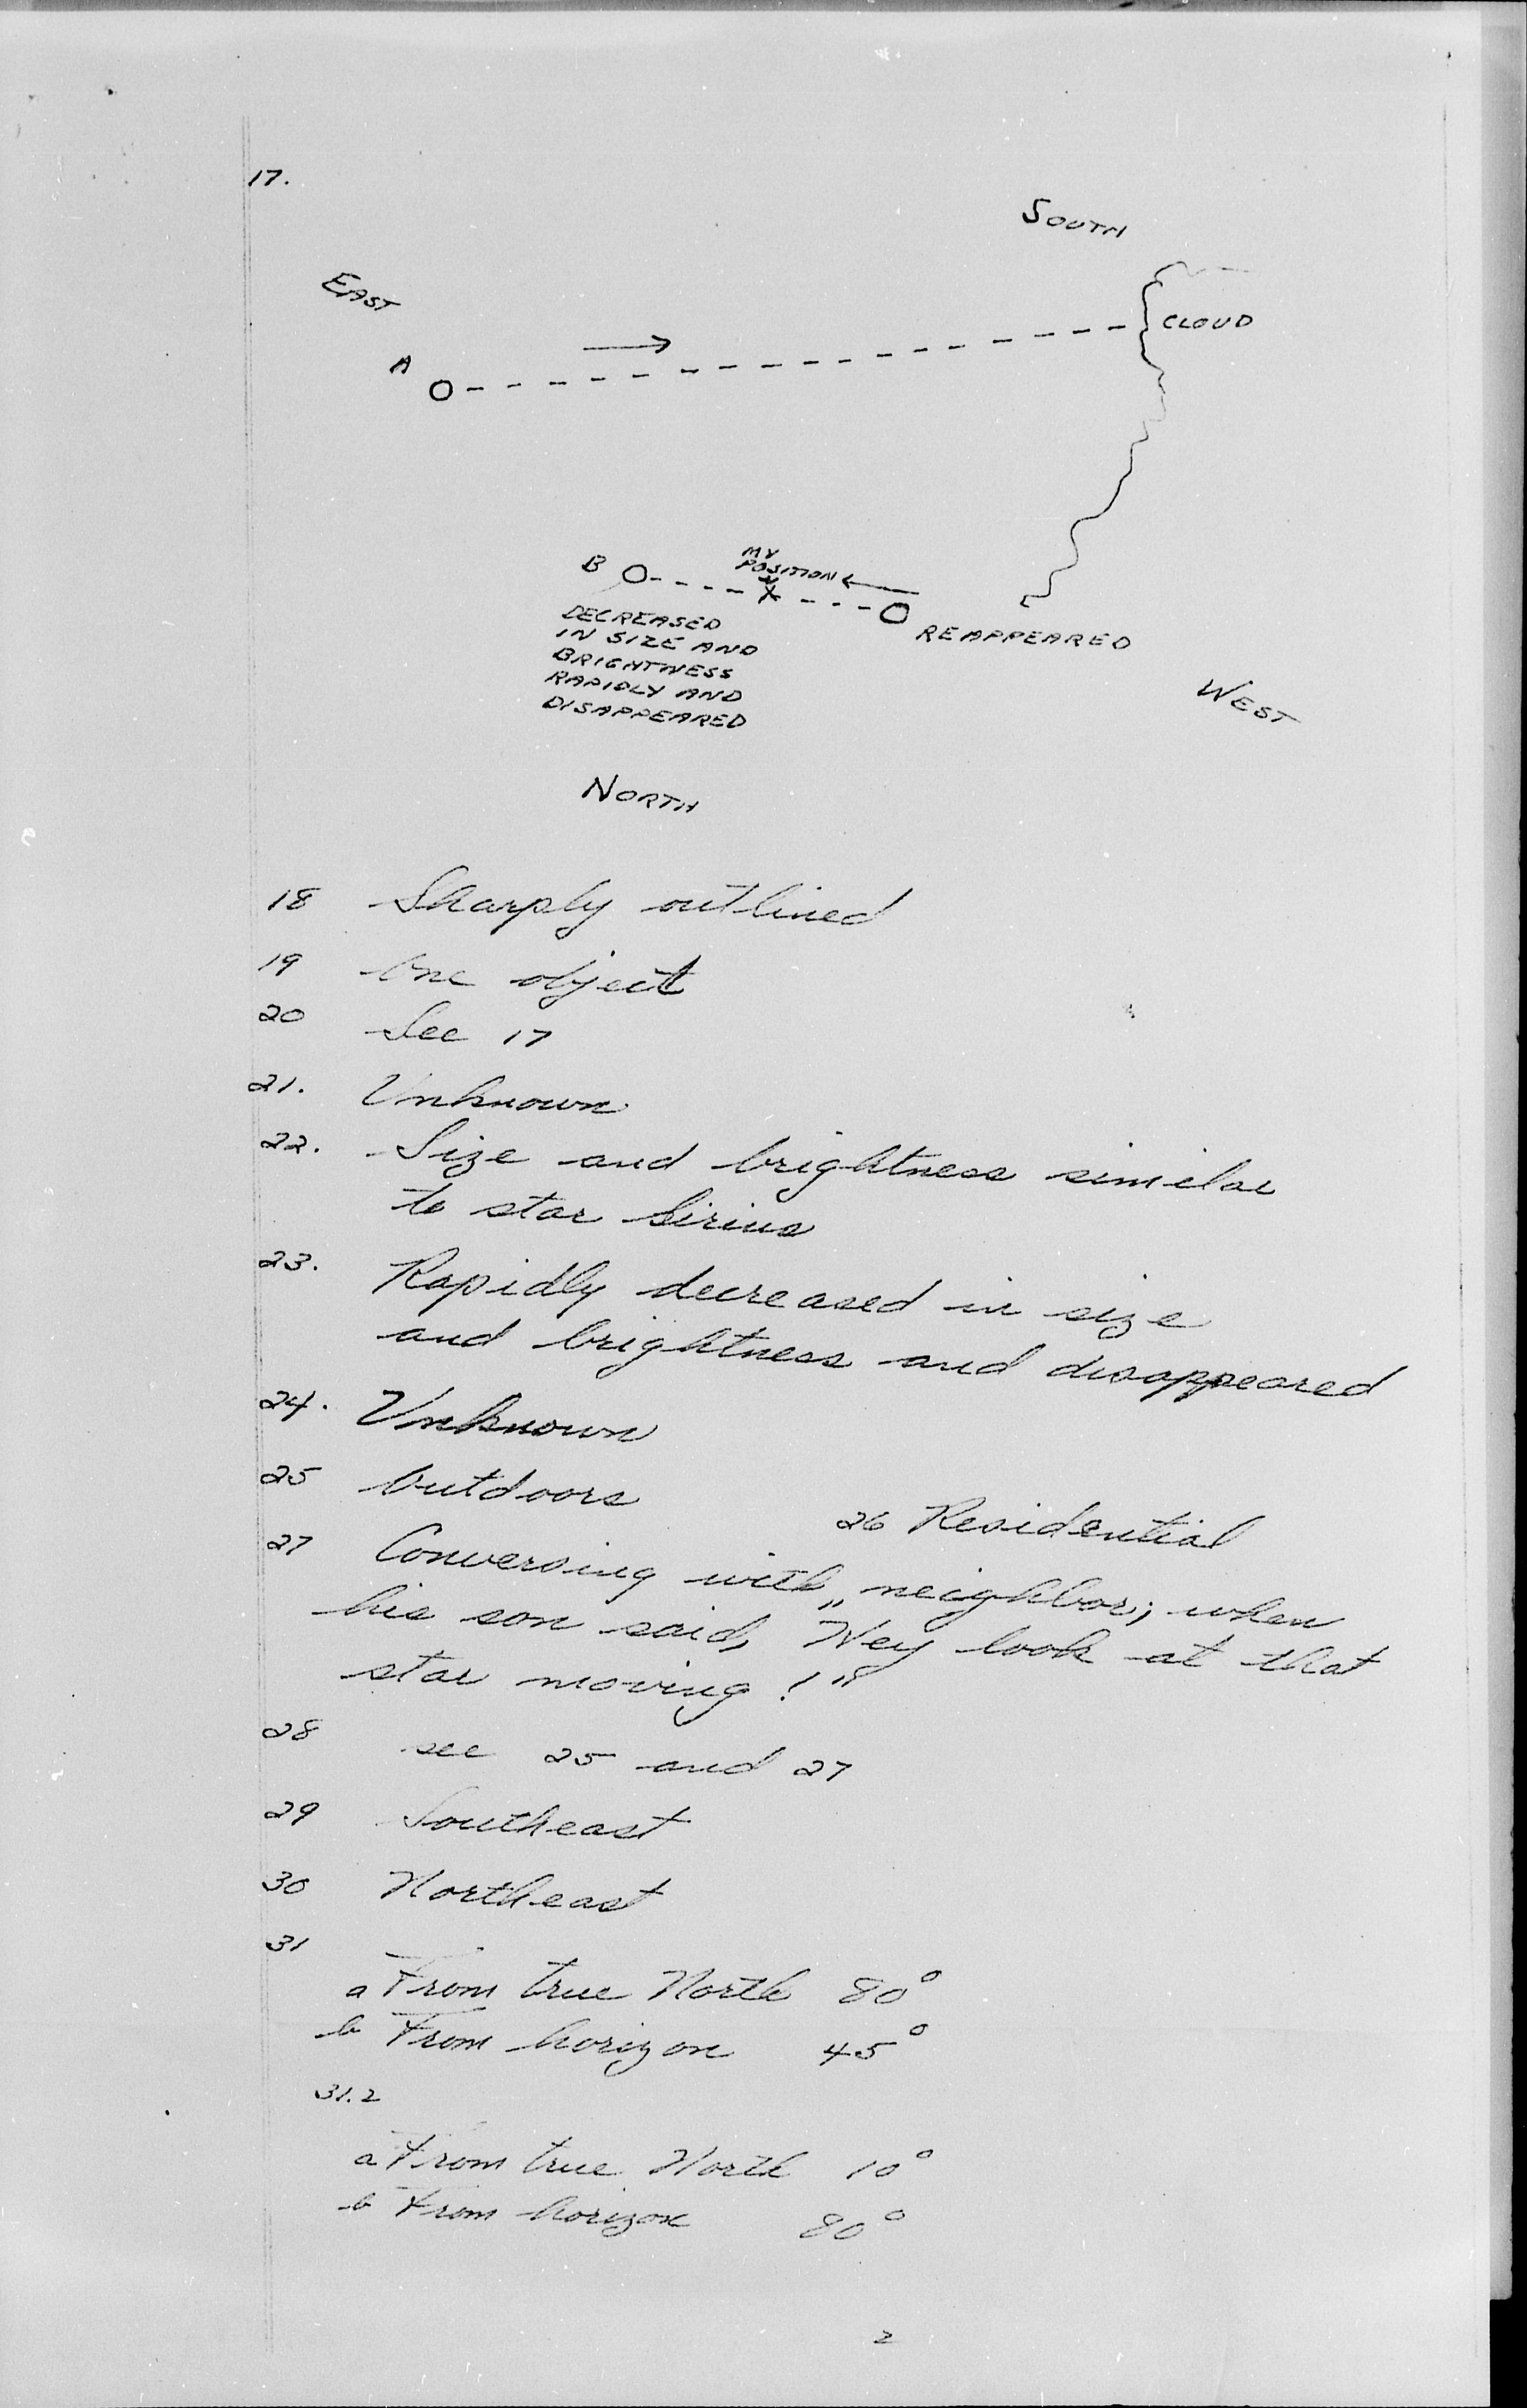 17.
SOUTH
EAST
CLOUD
A
B
MY
POSITION
X
REAPPEARED
DECREASED
IN SIZE AND
BRIGHTNESS
RAPIDLY AND
DISAPPEARED
WEST
NORTH
18 Sharply outlined
19 One object
20 See 17
21. Unknown
22. Size and brightness similar
to star Sirius
23. Rapidly decreased in size
and brightness and disappeared
24. Unknown
25 Outdoors
26 Residential
27 Conversing with neighbor, when
his son said, "Hey look at that
star moving!"
28 see 25 and 27
29 Southeast
30 Northeast
31
a From true North 80°
b From horizon 45°
31.2
a From true North 10°
b From horizon 80°
2